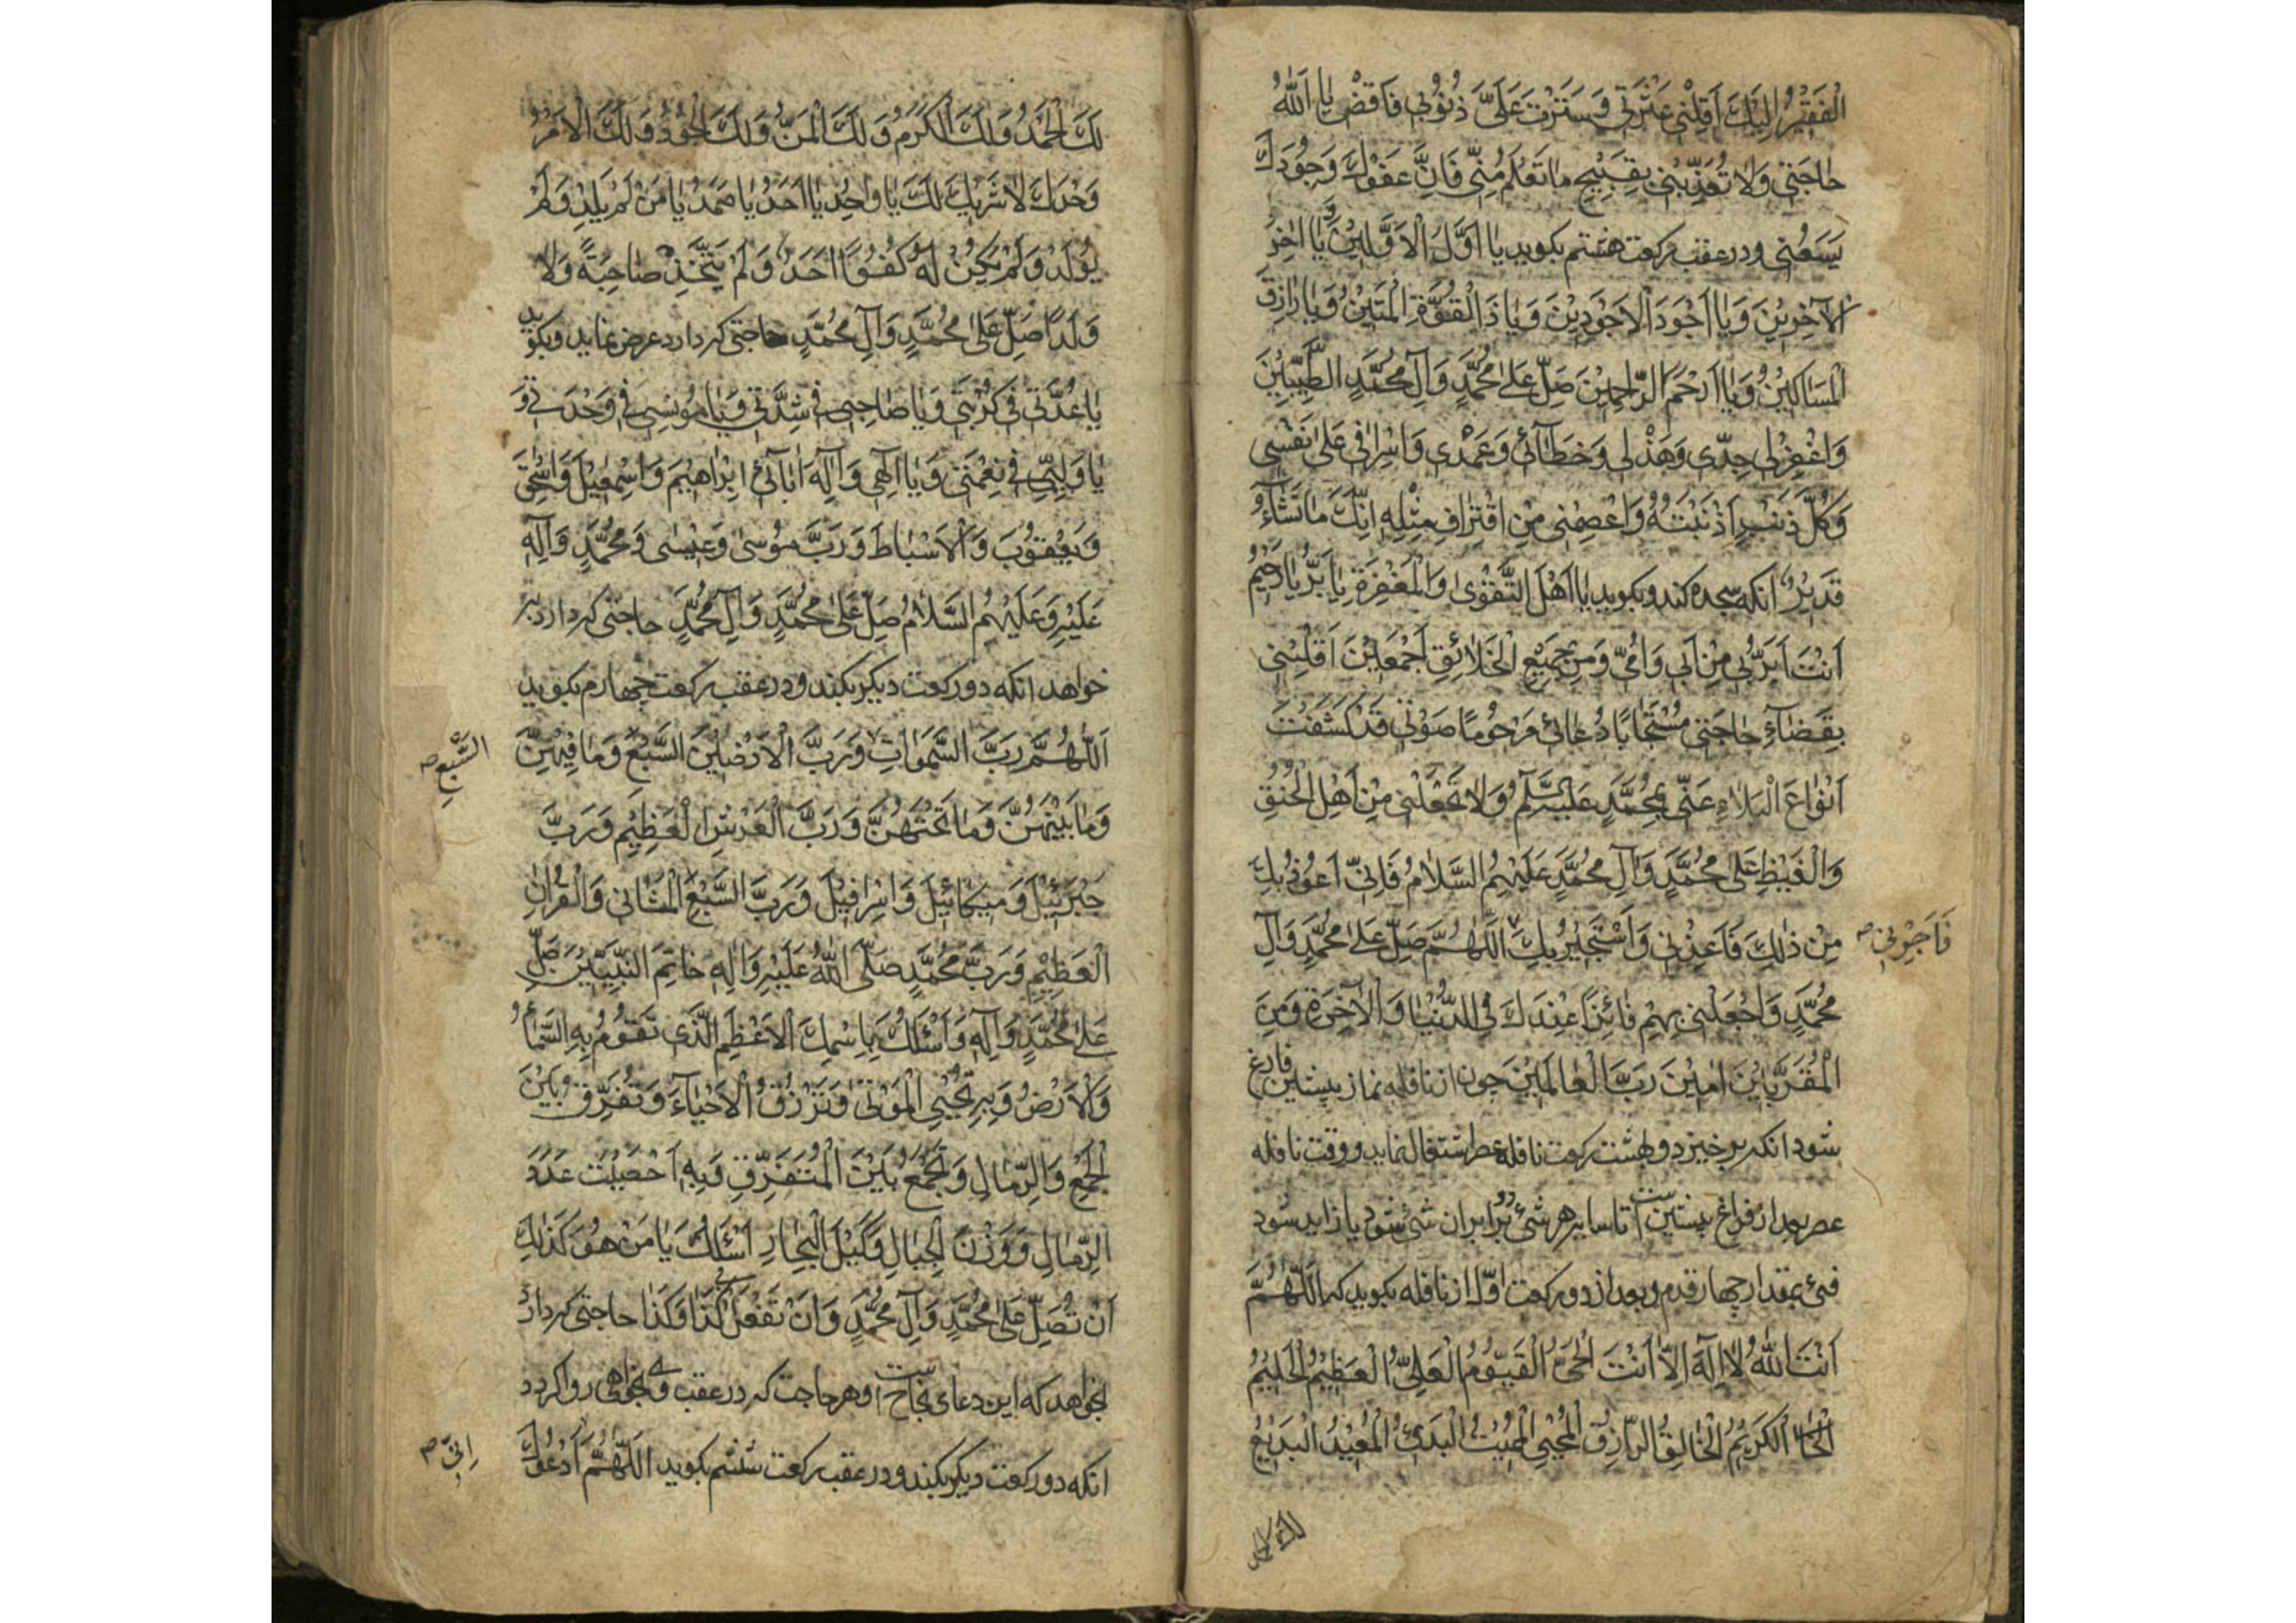 الْفَقِيْرُ اِلَيْكَ اَقِلْنِي عَثْرَتِي وَسَتَرْتَ عَلَيَّ ذُنُوْبِي فَاقْضِ يَا اَللّٰهُ
حَاجَتِي وَلَا تُعَذِّبْنِي بِقَبِيْحِ مَا تَعْلَمُ مِنِّي فَاِنَّ عَفْوَكَ وَجُوْدَكَ
يَسَعُنِي ودر عقب ركعت هشتم بكويد يَا اَوَّلَ الْاَوَّلِيْنَ وَ يَا اٰخِرَ
الْاٰخِرِيْنَ وَيَا اَجْوَدَ الْاَجْوَدِيْنَ وَيَا ذَا الْقُوَّةِ الْمَتِيْنُ وَيَا رَازِقَ
الْمَسَاكِيْنَ وَيَا اَرْحَمَ الرَّاحِمِيْنَ صَلِّ عَلٰى مُحَمَّدٍ وَآلِ مُحَمَّدٍ الطَّيِّبِيْنَ
وَاغْفِرْ لِي جِدِّي وَهَذْلِي وَخَطَآئِي وَعَمْدِي وَاِسْرَافِي عَلٰى نَفْسِي
وَكُلَّ ذَنْبٍ اَذْنَبْتُهُ وَاعْصِمْنِي مِنِ اقْتِرَافِ مِثْلِهِ اِنَّكَ مَا تَشَآءُ
قَدِيْرٌ انكه سجده كند وبكويد يَا اَهْلَ التَّقْوٰى وَالْمَغْفِرَةِ يَا بَرُّ يَا رَحِيْمُ
اَنْتَ اَبَرُّ بِي مِنْ اَبِي وَاُمِّي وَمِنْ جَمِيْعِ الْخَلَائِقِ اَجْمَعِيْنَ اَقْلِبْنِي
بِقَضَآءِ حَاجَتِي مُسْتَجَابًا دُعَائِي مَرْحُوْمًا صَوْتِي قَدْ كَشَفْتَ
اَنْوَاعَ الْبَلَاءِ عَنِّي بِمُحَمَّدٍ عَلَيْهِ السَّلَمُ وَلَا تَجْعَلْنِي مِنْ اَهْلِ الْحُنُقِ
وَالْغَيْظِ عَلٰى مُحَمَّدٍ وَآلِ مُحَمَّدٍ عَلَيْهِمُ السَّلَامُ فَاِنِّي اَعُوْذُ بِكَ
مِنْ ذٰلِكَ فَاَعِذْنِي وَاَسْتَجِيْرُ بِكَ اَللّٰهُمَّ صَلِّ عَلٰى مُحَمَّدٍ وَآلِ
فَاَجِرْنِي صح
مُحَمَّدٍ وَاجْعَلْنِي بِهِمْ فَائِزًا عِنْدَكَ فِي الدُّنْيَا وَالْاٰخِرَةِ وَمِنَ
الْمُقَرَّبِيْنَ اٰمِيْنَ رَبَّ الْعَالَمِيْنَ چون از نافله نماز پيشين فارغ
شود انكه برخيزد وبهشت ركعت نافله عصر اشتغال نمايد ووقت نافله
عصر بعد از فراغ پيشين است تا سايه هر شئ دو برابر ان شئ شود يا زايد شود
فئ بمقدار چهار قدم وبعد از دو ركعت اوّل از نافله بكويد كه اَللّٰهُمَّ
اَنْتَ اللّٰهُ لَا اِلٰهَ اِلَّا اَنْتَ الْحَيُّ الْقَيُّوْمُ الْعَلِيُّ الْعَظِيْمُ الْحَلِيْمُ
الْكَرِيْمُ الْخَالِقُ الرَّازِقُ الْمُحْيِي الْمُمِيْتُ الْبَدِئُ الْمُعِيْدُ الْبَدِيْعُ
لك الحمد
لَكَ الْحَمْدُ وَلَكَ الْكَرَمُ وَلَكَ الْمَنُّ وَلَكَ الْجُوْدُ وَلَكَ الْاَمْرُ
وَحْدَكَ لَا شَرِيْكَ لَكَ يَا وَاحِدُ يَا اَحَدُ يَا صَمَدُ يَا مَنْ لَمْ يَلِدْ وَلَمْ
يُوْلَدْ وَلَمْ يَكُنْ لَهُ كُفُوًا اَحَدٌ وَلَمْ يَتَّخِذْ صَاحِبَةً وَلَا
وَلَدًا صَلِّ عَلٰى مُحَمَّدٍ وَآلِ مُحَمَّدٍ حاجتى كه دارد عرض نمايد وبكويد
يَا عُدَّتِي فِي كُرْبَتِي وَيَا صَاحِبِي فِي شِدَّتِي وَيَا مُوْنِسِي فِي وَحْدَتِي وَ
يَا وَلِيِّي فِي نِعْمَتِي وَيَا اِلٰهِي وَاِلٰهَ اٰبَائِي اِبْرَاهِيْمَ وَاِسْمٰعِيْلَ وَاِسْحٰقَ
وَيَعْقُوْبَ وَالْاَسْبَاطَ وَرَبَّ مُوْسٰى وَعِيْسٰى وَمُحَمَّدٍ وَآلِهِ
عَلَيْهِ وَعَلَيْهِمُ السَّلَامُ صَلِّ عَلٰى مُحَمَّدٍ وَآلِ مُحَمَّدٍ حاجتى كه دارد
خواهد انكه دو ركعت ديكر بكند ودر عقب ركعت چهارم بكويد
اَللّٰهُمَّ رَبَّ السَّمٰوَاتِ وَرَبَّ الْاَرَضِيْنَ السَّبْعِ وَمَا فِيْهِنَّ
السَّبْعِ صح
وَمَا بَيْنَهُنَّ وَمَا تَحْتَهُنَّ وَرَبَّ الْعَرْشِ الْعَظِيْمِ وَرَبَّ
جَبْرَئِيْلَ وَمِيْكَائِيْلَ وَاِسْرَافِيْلَ وَرَبَّ السَّبْعِ الْمَثَانِي وَالْقُرْاٰنِ
الْعَظِيْمِ وَرَبَّ مُحَمَّدٍ صَلَّى اللّٰهُ عَلَيْهِ وَآلِهِ خَاتَمِ النَّبِيِّيْنَ صَلِّ
عَلٰى مُحَمَّدٍ وَآلِهِ وَاَسْئَلُكَ بِاسْمِكَ الْاَعْظَمِ الَّذِي تَقُوْمُ بِهِ السَّمَاءُ
وَالْاَرْضُ وَبِهِ تُحْيِي الْمَوْتٰى وَتَرْزُقُ الْاَحْيَاءَ وَتُفَرِّقُ بَيْنَ
الْجَمْعِ وَالرِّمَالِ وَتَجْمَعُ بَيْنَ الْمُتَفَرِّقِ وَبِهِ اَحْصَيْتَ عَدَدَ
الرِّمَالِ وَوَزْنَ الْجِبَالِ وَكَيْلَ الْبِحَارِ اَسْئَلُكَ يَا مَنْ هُوَ كَذٰلِكَ
اَنْ تُصَلِّيَ عَلٰى مُحَمَّدٍ وَآلِ مُحَمَّدٍ وَاَنْ تَفْعَلَ بِي كَذَا وَكَذَا حاجتى كه دارد
بخواهد كه اين دعاى نجاح است وهر حاجت كه در عقب وى بخواهى روا كردد
انكه دو ركعت ديكر بكند ودر عقب ركعت ششم بكويد اَللّٰهُمَّ اَدْعُوْكَ
اِنِّي صح